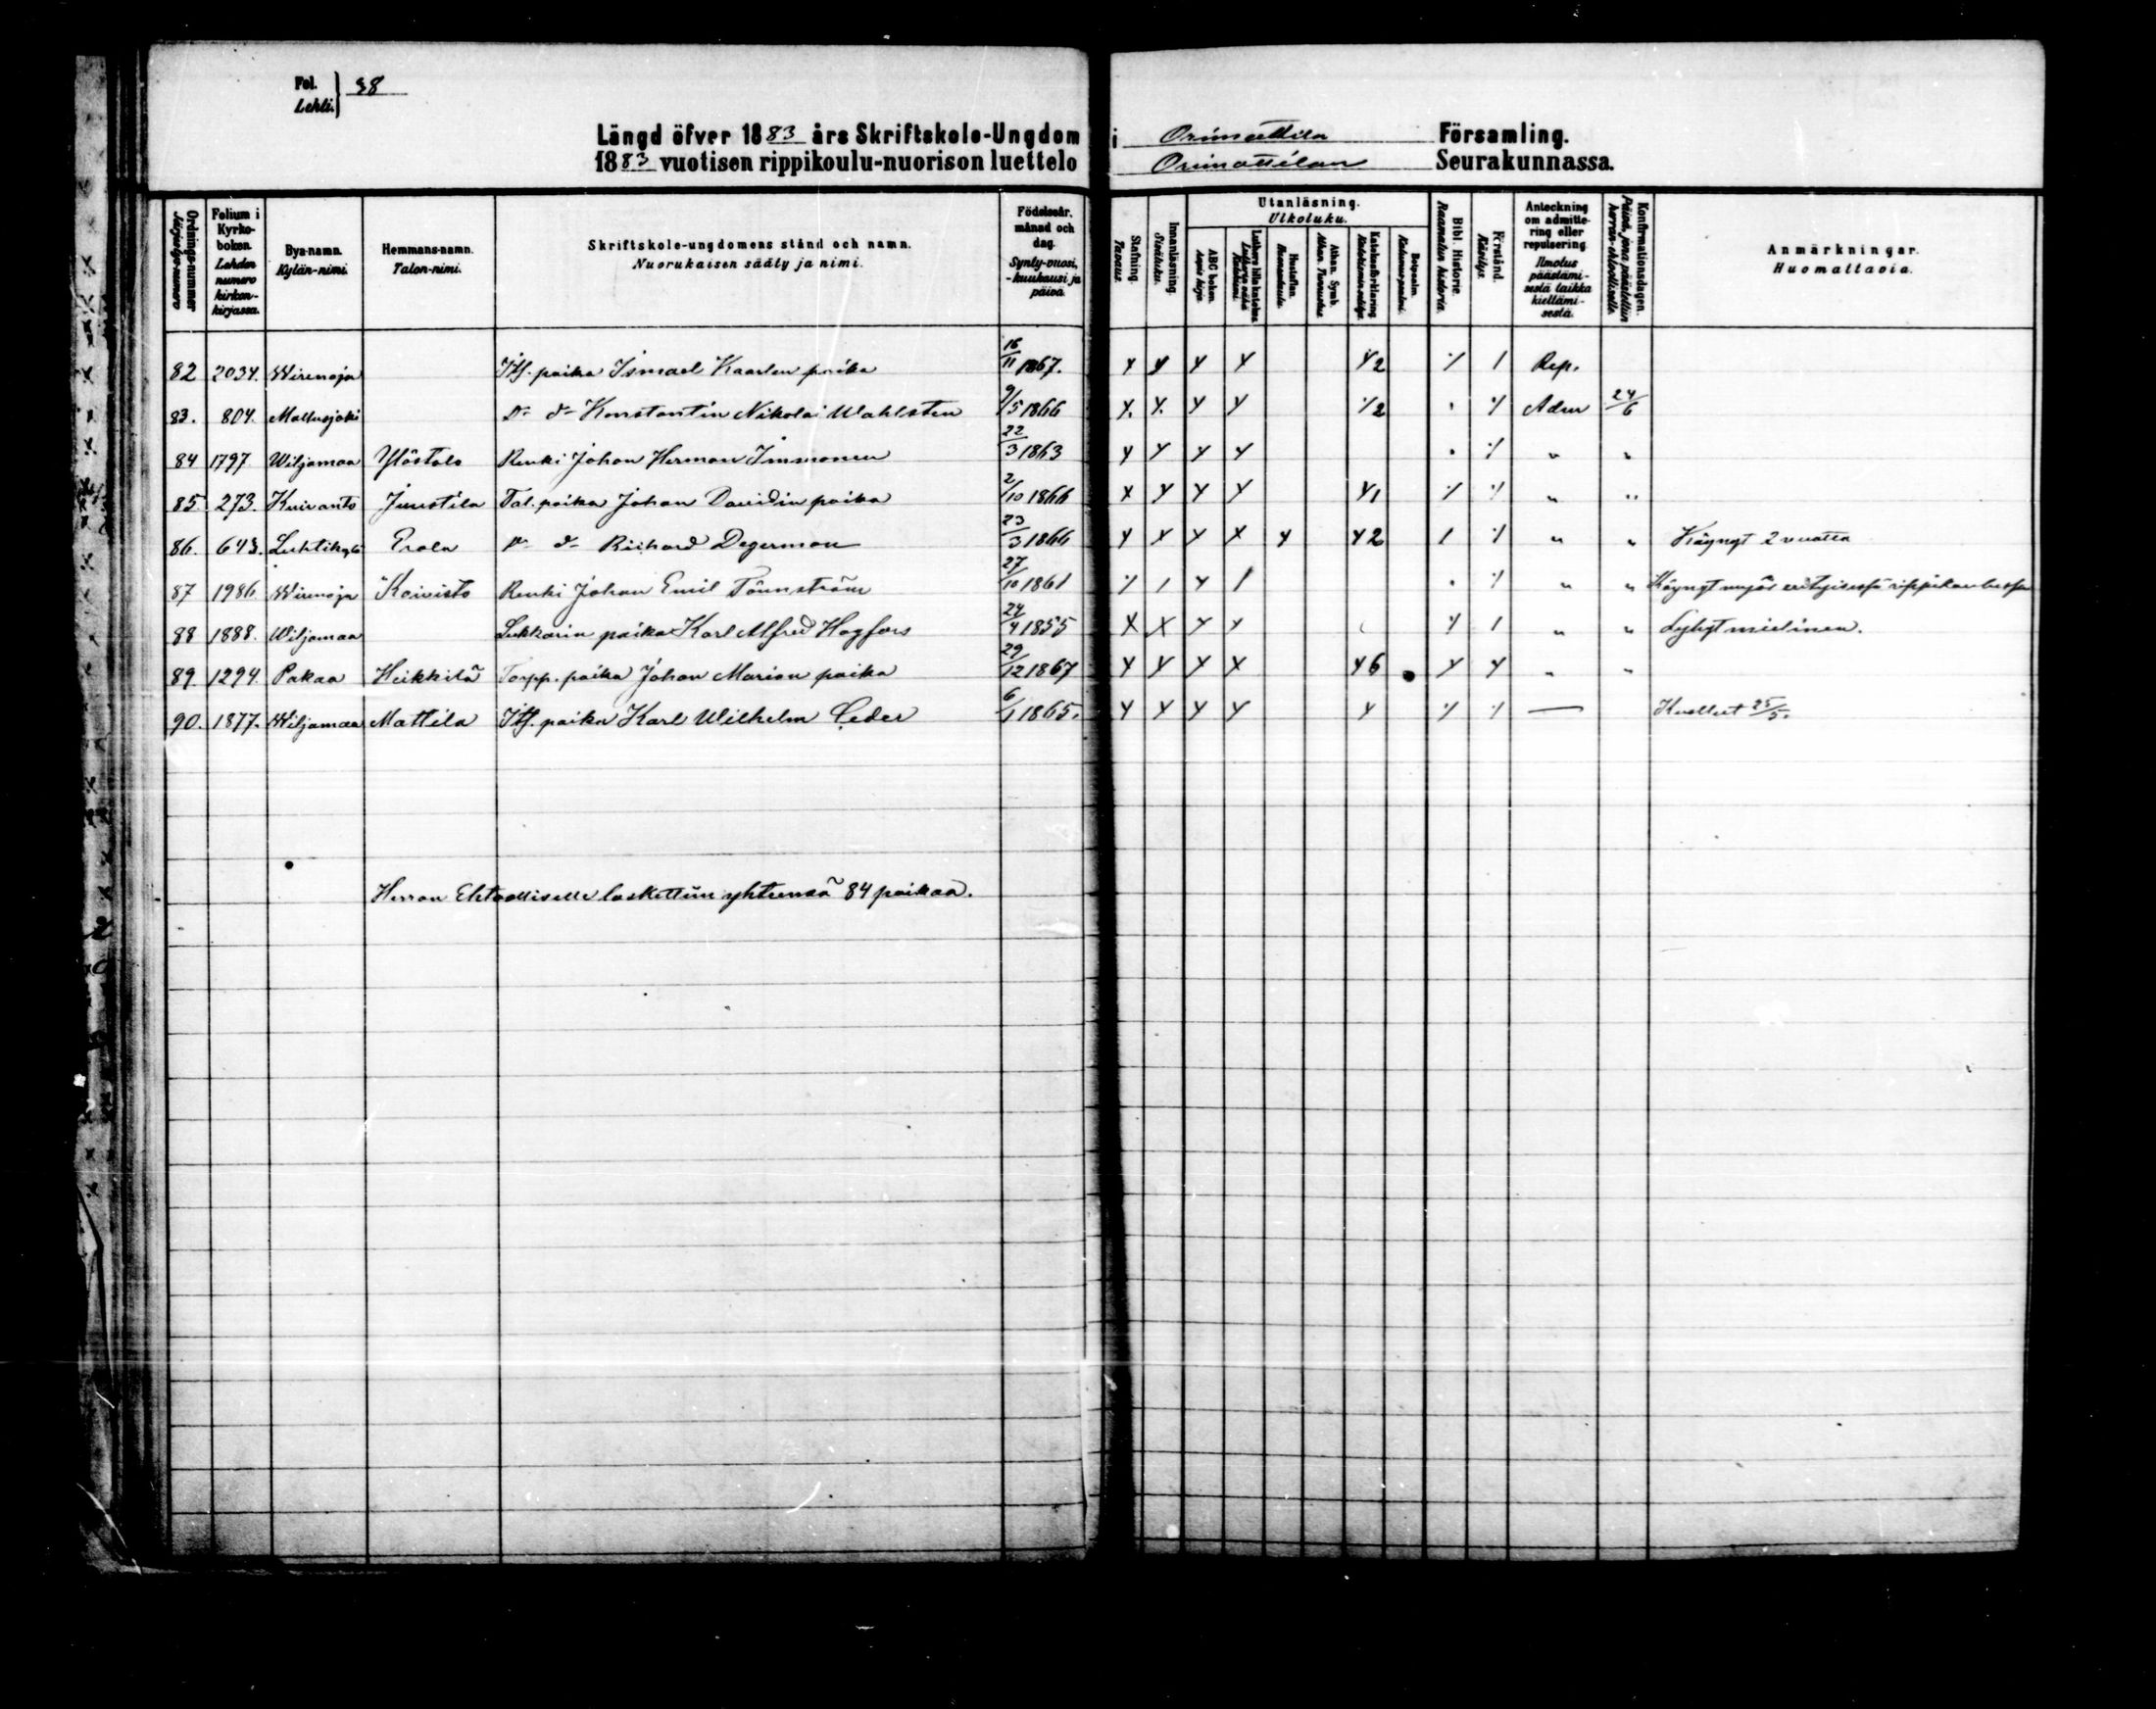 Fol. Lehti. 38
Längd öfver 1883 års Skriftskole-Ungdom i Orimattila Församling.
1883 vuotisen rippikoulu-nuorison luettelo Orimattilan Seurakunnassa.
Ordnings-nummer Järjestys-numero
Folium i Kyrko-boken. Lehden numero kirkon-kirjassa.
Bya-namn. Kylän-nimi.
Hemmans-namn. Talon-nimi.
Skriftskole-ungdomens stånd och namn. Nuorukaisen sääty ja nimi.
Födelseår, månad och dag. Synty-vuosi, -kuukausi ja päivä.
Stafning. Tavaus.
Innanläsning. Sisäluku.
Utanläsning. Ulkoluku.
ABC boken. Aapis kirja.
Luthers lilla katekes. Lutherin vähä Katekismi.
Hustaflan. Huoneentaulu.
Athan. Symb. Athan. Tunnustus.
Katekesförklaring. Katekismin selitys.
Botpsalm. Katumus-psalmi.
Bibl. Historie. Raamatun historia.
Förstånd. Käsitys.
Anteckning om admitte-ring eller repulsering. Ilmotus päästämi-sestä taikka kieltämi-sestä.
Konfirmationsdagen. Päivä, jona päästettiin herran-ehtoolliselle.
Anmärkningar. Huomattavia.
82 2034. Wirenoja Itf. poika Ismael Kaarlen poika 16/11 1867. Y Y Y Y Y2 ٪ 1 Rep.
83. 804. Mallusjoki Do do Konstantin Nikolai Wahlsten 9/5 1866 Y. Y. Y Y ٪2 . ٪ Adm 24/6
84 1797 Wiljamaa Ylöstalo Renki Johan Herman Immonen 22/3 1863 Y Y Y Y . ٪ " "
85. 273. Kuivanto Juustila Tal. poika Johan Davidin poika 2/10 1866 X Y Y Y Y1 ٪ ٪ " "
86. 643. Luhtikylä Erola Do do Richard Degerman 23/3 1866 Y X Y X Y Y2 1 ٪ " " Käynyt 2 vuotta
87 1986 Wirenoja Koivisto Renki Johan Emil Tönnström 27/10 1861 ٪ 1 Y 1 . ٪ " " Käynyt myös erityisessä rippikoulussa
88 1888. Wiljamaa Lukkarin poika Karl Alfred Hagfors 24/4 1855 X X Y Y ٪ 1 " " Lyhytmielinen.
89. 1294. Pakaa Heikkilä Torpp. poika Johan Marian poika 29/12 1867 Y Y Y X Y6 Y Y " "
90. 1877. Wiljamaa Mattila Itf. poika Karl Wilhelm Ceder 6/1 1865. Y Y Y Y Y ٪ ٪ — Kuollut 25/5.
Herran Ehtoolliselle laskettiin yhteensä 84 poikaa.